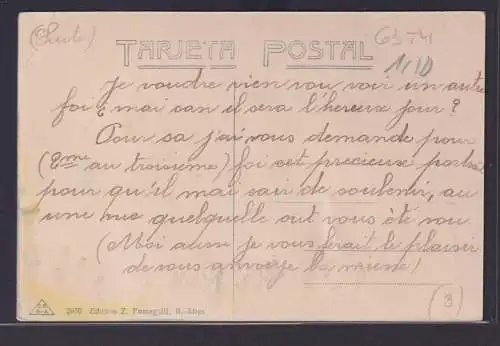 (Suite)
6574
TARJETA POSTAL
1/10
Je voudre vien vou voir un autre
foi ¿ mai can il sera l'hereux jour ?
Pour sa j'ai vous demande pour
(2me au troisieme) foi cet precieux portrait
pour qu'il mai sair de souvenir, au
une me quelquelle out vous été vou
(Moi ausi je vous ferait le plaisir
de vous anvoyer la miene!)
(3)
2970 Edicion Z. Fumagalli, B. Aires